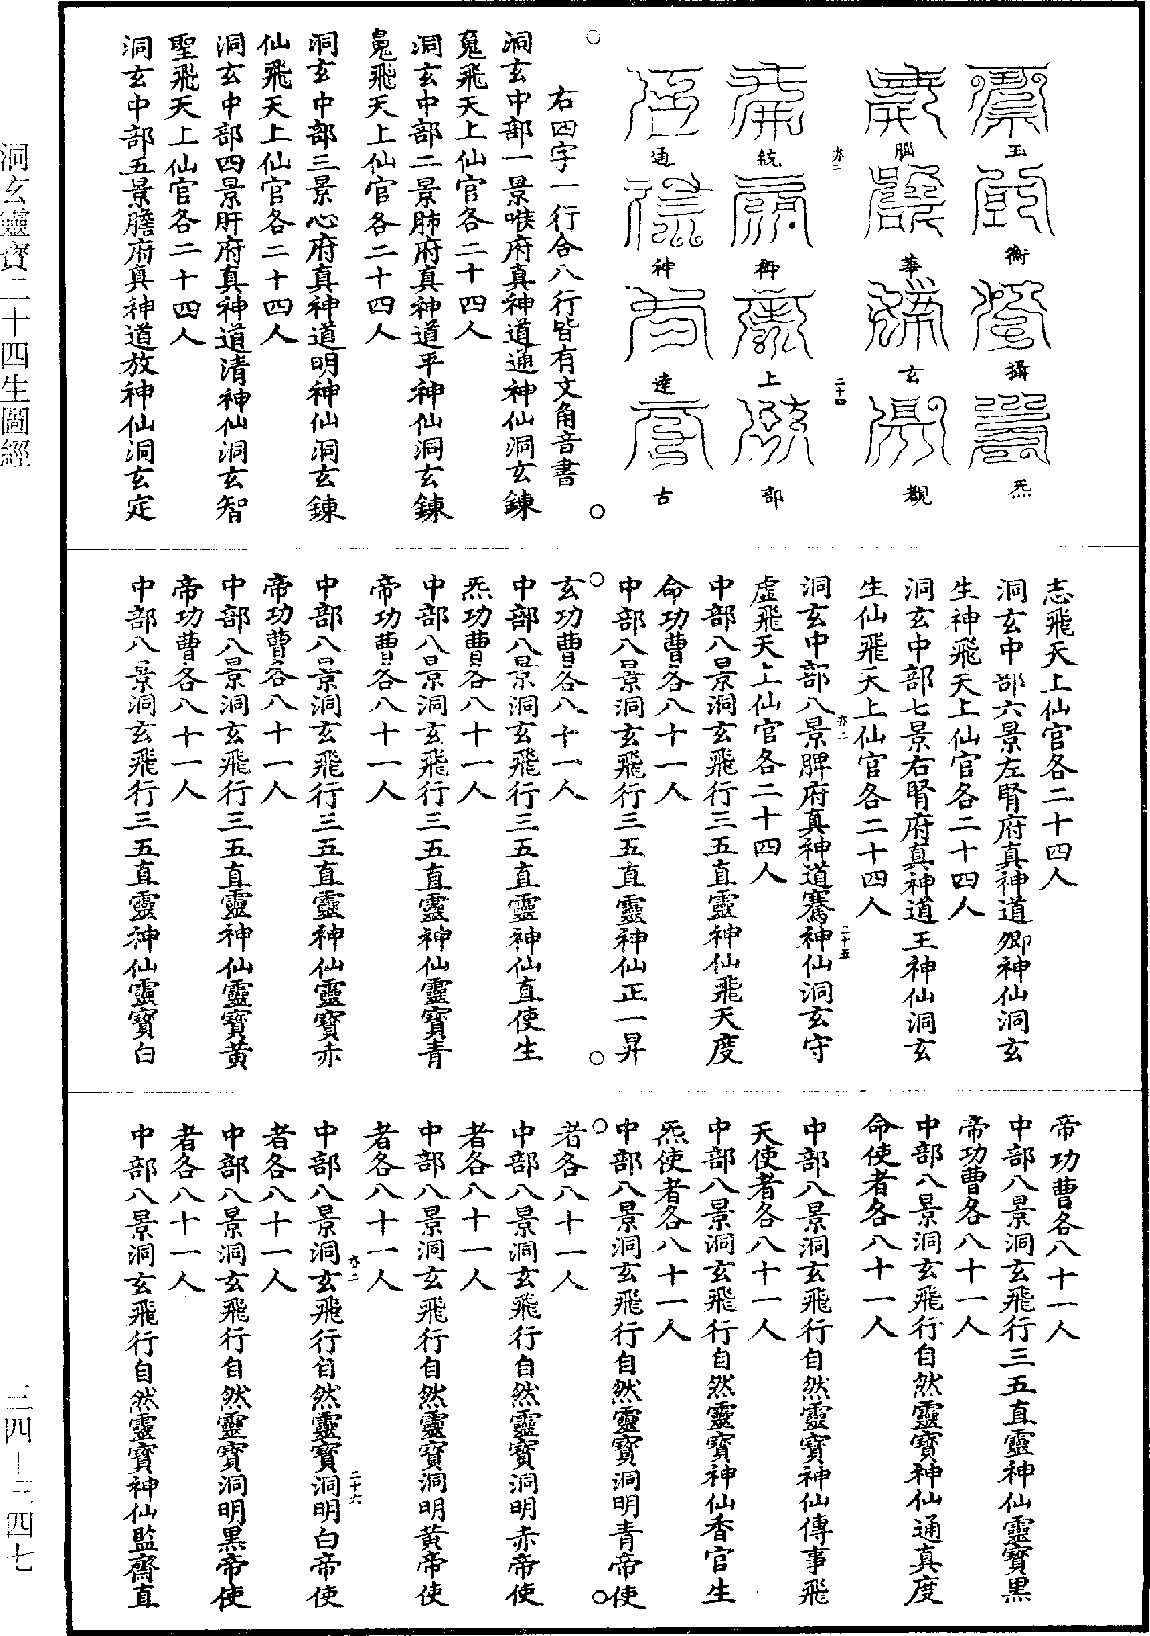 玉衡攝炁
腦華玄覩
統御上部
通神達古
右四字一行合八行皆有文角音書
洞玄中部一景喉府真神道通神仙洞玄鍊
䰟飛天上仙官各二十四人
洞玄中部二景肺府真神道平神仙洞玄鍊
䰟飛天上仙官各二十四人
洞玄中部三景心府真神道明神仙洞玄鍊
仙飛天上仙官各二十四人
洞玄中部四景肝府真神道清神仙洞玄智
聖飛天上仙官各二十四人
洞玄中部五景膽府真神道放神仙洞玄定
志飛天上仙官各二十四人
洞玄中部六景左腎府真神道卿神仙洞玄
生神飛天上仙官各二十四人
洞玄中部七景右腎府真神道王神仙洞玄
生仙飛天上仙官各二十四人
洞玄中部八景脾府真神道騫神仙洞玄守
虛飛天上仙官各二十四人
中部八景洞玄飛行三五直靈神仙飛天度
命功曹各八十一人
中部八景洞玄飛行三五直靈神仙正一昇
玄功曹各八十一人
中部八景洞玄飛行三五直靈神仙直使生
炁功曹各八十一人
中部八景洞玄飛行三五直靈神仙靈寶青
帝功曹各八十一人
中部八景洞玄飛行三五直靈神仙靈寶赤
帝功曹各八十一人
中部八景洞玄飛行三五直靈神仙靈寶黃
帝功曹各八十一人
中部八景洞玄飛行三五直靈神仙靈寶白
帝功曹各八十一人
中部八景洞玄飛行三五直靈神仙靈寶黑
帝功曹各八十一人
中部八景洞玄飛行自然靈寶神仙通真度
命使者各八十一人
中部八景洞玄飛行自然靈寶神仙傳事飛
天使者各八十一人
中部八景洞玄飛行自然靈寶神仙香官生
炁使者各八十一人
中部八景洞玄飛行自然靈寶洞明青帝使
者各八十一人
中部八景洞玄飛行自然靈寶洞明赤帝使
者各八十一人
中部八景洞玄飛行自然靈寶洞明黃帝使
者各八十一人
中部八景洞玄飛行自然靈寶洞明白帝使
者各八十一人
中部八景洞玄飛行自然靈寶洞明黑帝使
者各八十一人
中部八景洞玄飛行自然靈寶神仙監齋直
洞玄靈寶二十四生圖經
三四—三四七